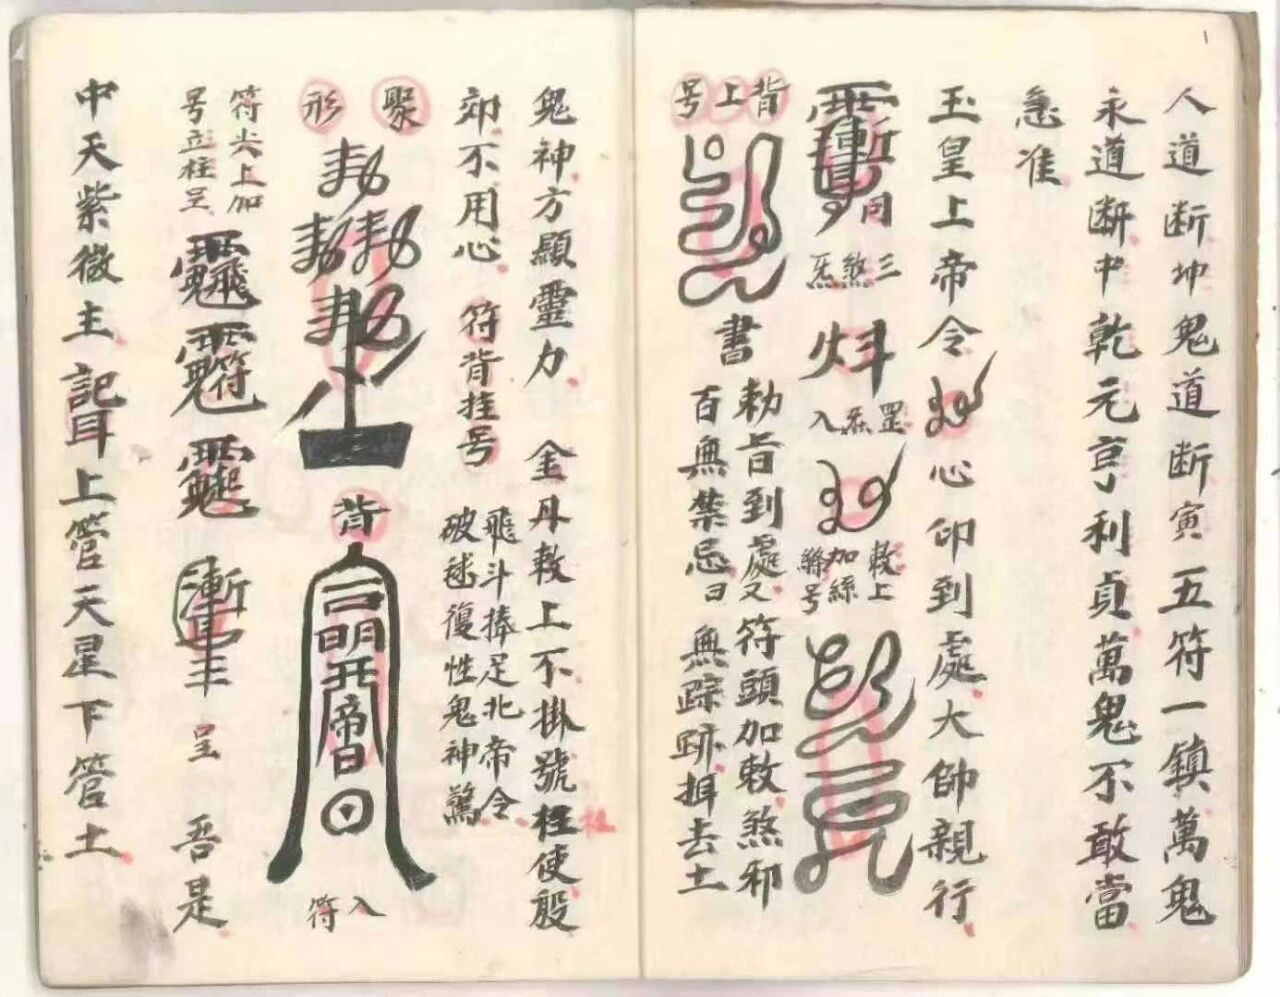 1
人道断坤鬼道断寅五符一鎮萬鬼
永道断中乾元亨利貞萬鬼不敢當
急准
玉皇上帝令
心印到處大帥親行
同
三煞炁
炓
罡炁入
敕上
加絲
絲号
背上号
書
勅旨到處又符頭加敕煞邪
百無禁忌曰無踪跡揖去土
鬼神方顯靈力
金丹敕上不掛號枉使殷
郊不用心
符背挂号
飛斗捧足北帝令
破毬復性鬼神驚
聚形
背
明
帝
日
入符
符尖上加
号立柱呈
呈
吾是
中天紫微主
耳上管天星下管土